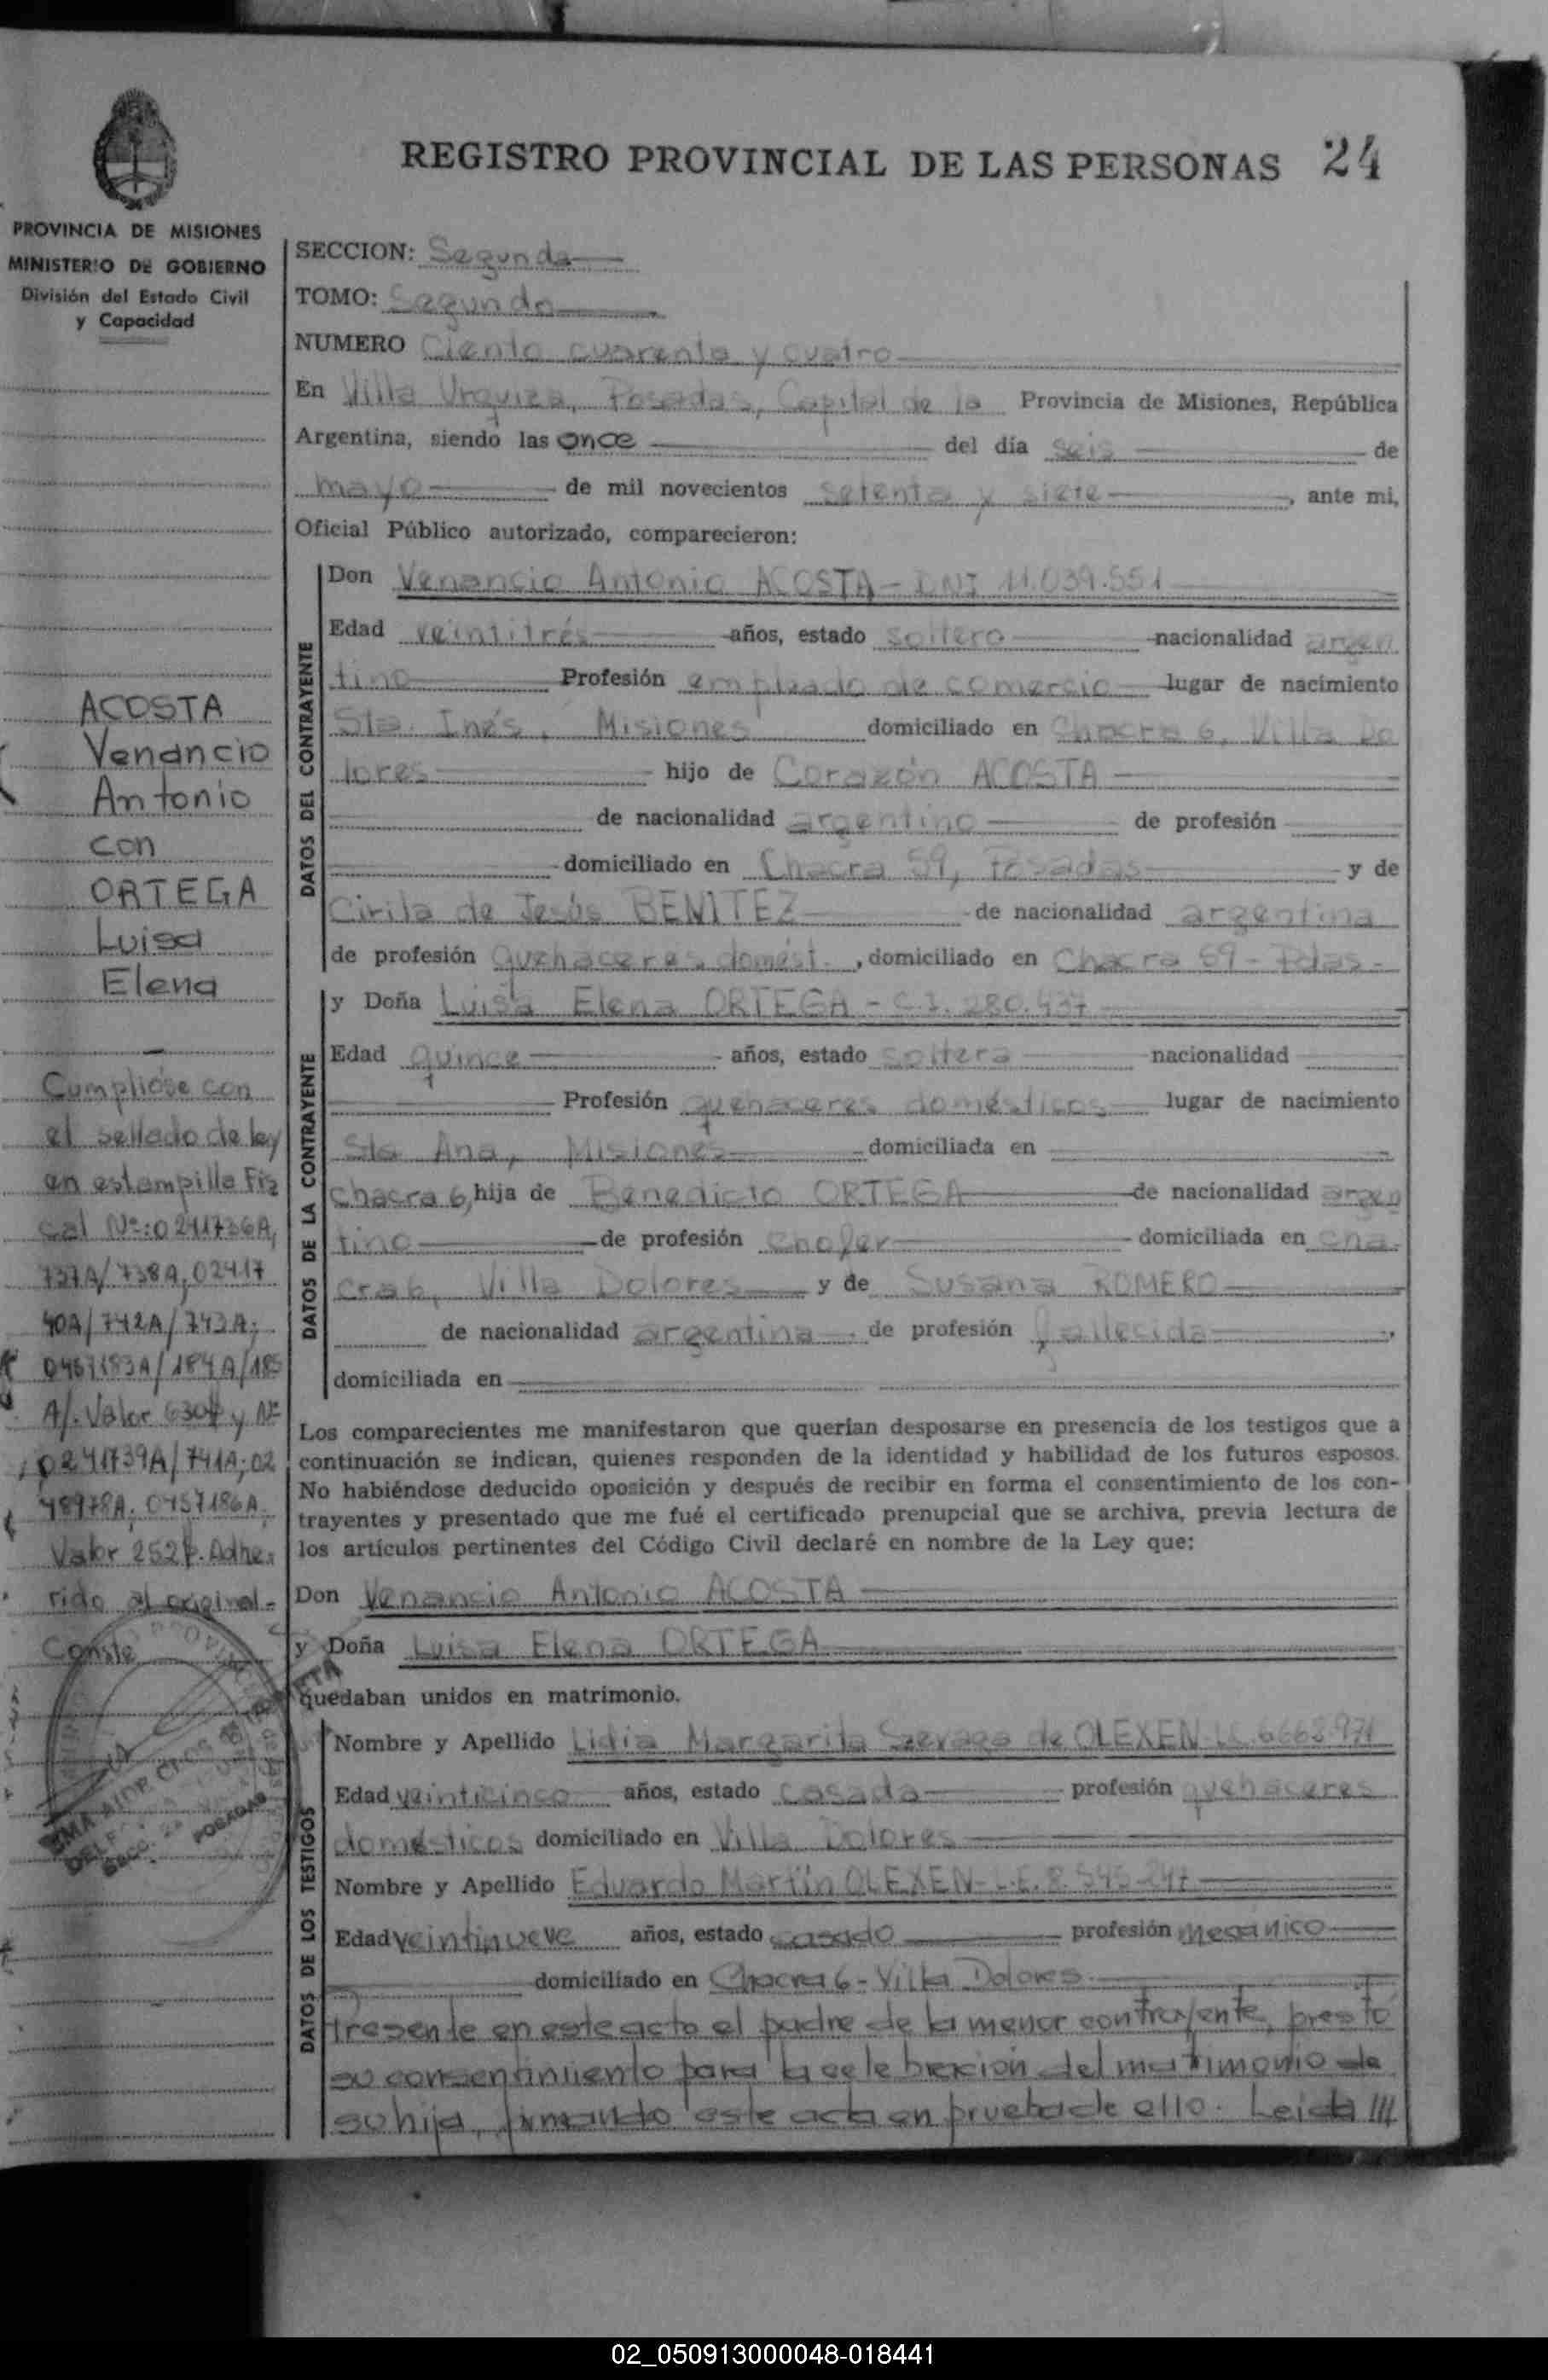 REGISTRO PROVINCIAL DE LAS PERSONAS 24
PROVINCIA DE MISIONES
MINISTERIO DE GOBIERNO
División del Estado Civil
y Capacidad
SECCION: Segunda
TOMO: Segundo
NUMERO Ciento cuarenta y cuatro
En Villa Urquiza, Posadas, Capital de la Provincia de Misiones, República
Argentina, siendo las once del día seis de
mayo de mil novecientos setenta y siete, ante mi,
Oficial Público autorizado, comparecieron:
DATOS DEL CONTRAYENTE
Don Venancio Antonio ACOSTA - DNI 11.039.551
Edad veintitrés años, estado soltero nacionalidad argen
tino Profesión empleado de comercio lugar de nacimiento
Sta. Inés, Misiones domiciliado en Chacra 6, Villa Do
lores hijo de Corazón ACOSTA
de nacionalidad argentino de profesión
domiciliado en Chacra 59, Posadas y de
Cirila de Jesús BENITEZ de nacionalidad argentina
de profesión quehaceres domést., domiciliado en Chacra 59 - Pdas -
DATOS DE LA CONTRAYENTE
y Doña Luisa Elena ORTEGA - C.I. 280.437
Edad quince años, estado soltera nacionalidad
Profesión quehaceres domésticos lugar de nacimiento
Sta Ana, Misiones domiciliada en
Chacra 6, hija de Benedicto ORTEGA de nacionalidad argen
tino de profesión chofer domiciliada en cha
cra 6, Villa Dolores y de Susana ROMERO
de nacionalidad argentina de profesión fallecida,
domiciliada en
Los comparecientes me manifestaron que querían desposarse en presencia de los testigos que a
continuación se indican, quienes responden de la identidad y habilidad de los futuros esposos.
No habiéndose deducido oposición y después de recibir en forma el consentimiento de los con-
trayentes y presentado que me fué el certificado prenupcial que se archiva, previa lectura de
los artículos pertinentes del Código Civil declaré en nombre de la Ley que:
Don Venancio Antonio ACOSTA
y Doña Luisa Elena ORTEGA
quedaban unidos en matrimonio.
DATOS DE LOS TESTIGOS
Nombre y Apellido Lidia Margarita de OLEXEN L.C. 6668.971
Edad veinticinco años, estado casada profesión quehaceres
domésticos domiciliado en Villa Dolores
Nombre y Apellido Eduardo Martín OLEXEN - L.E. 8.545.247
Edad veintinueve años, estado casado profesión mecánico
domiciliado en Chacra 6 - Villa Dolores
Presente en este acto el padre de la menor contrayente, prestó
su consentimiento para la celebración del matrimonio de
su hija, firmando este acta en prueba de ello. Leida ///
ACOSTA
Venancio
Antonio
con
ORTEGA
Luisa
Elena
Cumplióse con
el sellado de ley
en estampilla Fis
cal Nº: 0241736A,
737A/738A, 02417
40A/742A/743A;
0457183A/184A/185
A/. Valor 630$ y Nº
0241739A/741A; 02
48978A; 0457186A
Valor 252$. Adhe-
rido al original -
Conste
POSADAS
02_050913000048-018441